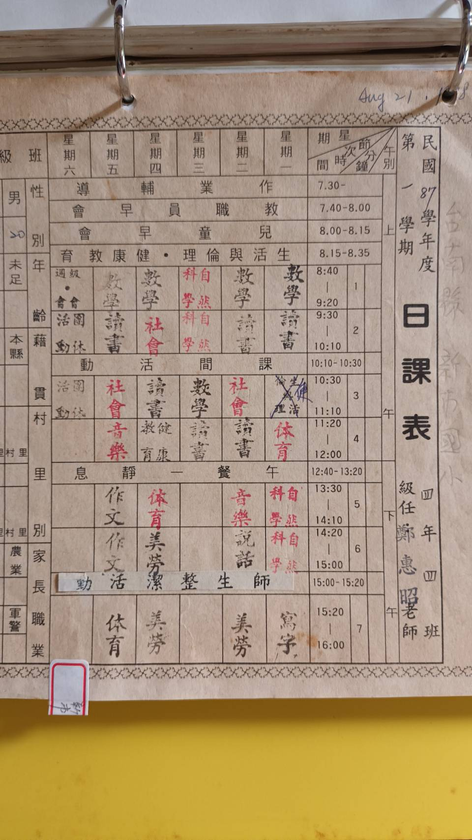 Aug 21
民國87學年度
第一學期
日課表
四年四班
級任鄭惠昭老師
星期 節次 分鐘 時間 午別
星期一 星期二 星期三 星期四 星期五 星期六
上午
7.30- 作業輔導
7.40-8.00 教職員早會
8.00-8.15 兒童早會
8.15-8.35 生活與倫理・健康教育
1 8:40-9:20 數學 數學 自然科學 數學 數學 週會・級會
2 9:30-10:10 讀書 讀書 自然科學 社會 讀書 團體活動
10:10-10:30 課間活動
3 10:30-11:10 健 社會 數學 讀書 社會 團體活動
4 11:20-12:00 体育 讀書 讀書 健康教育 音樂
12:40-13:20 午餐一靜息
下午
5 13:30-14:10 自然科學 音樂 体育 作文
6 14:20-15:00 自然科學 說話 美勞 作文
15:00-15:20 師生整潔活動
7 15:20-16:00 寫字 美勞 美勞 体育
班級
性別 年齡 籍貫 村里別 家長職業
男
20
未足
本縣
村里
村里
農業
軍警